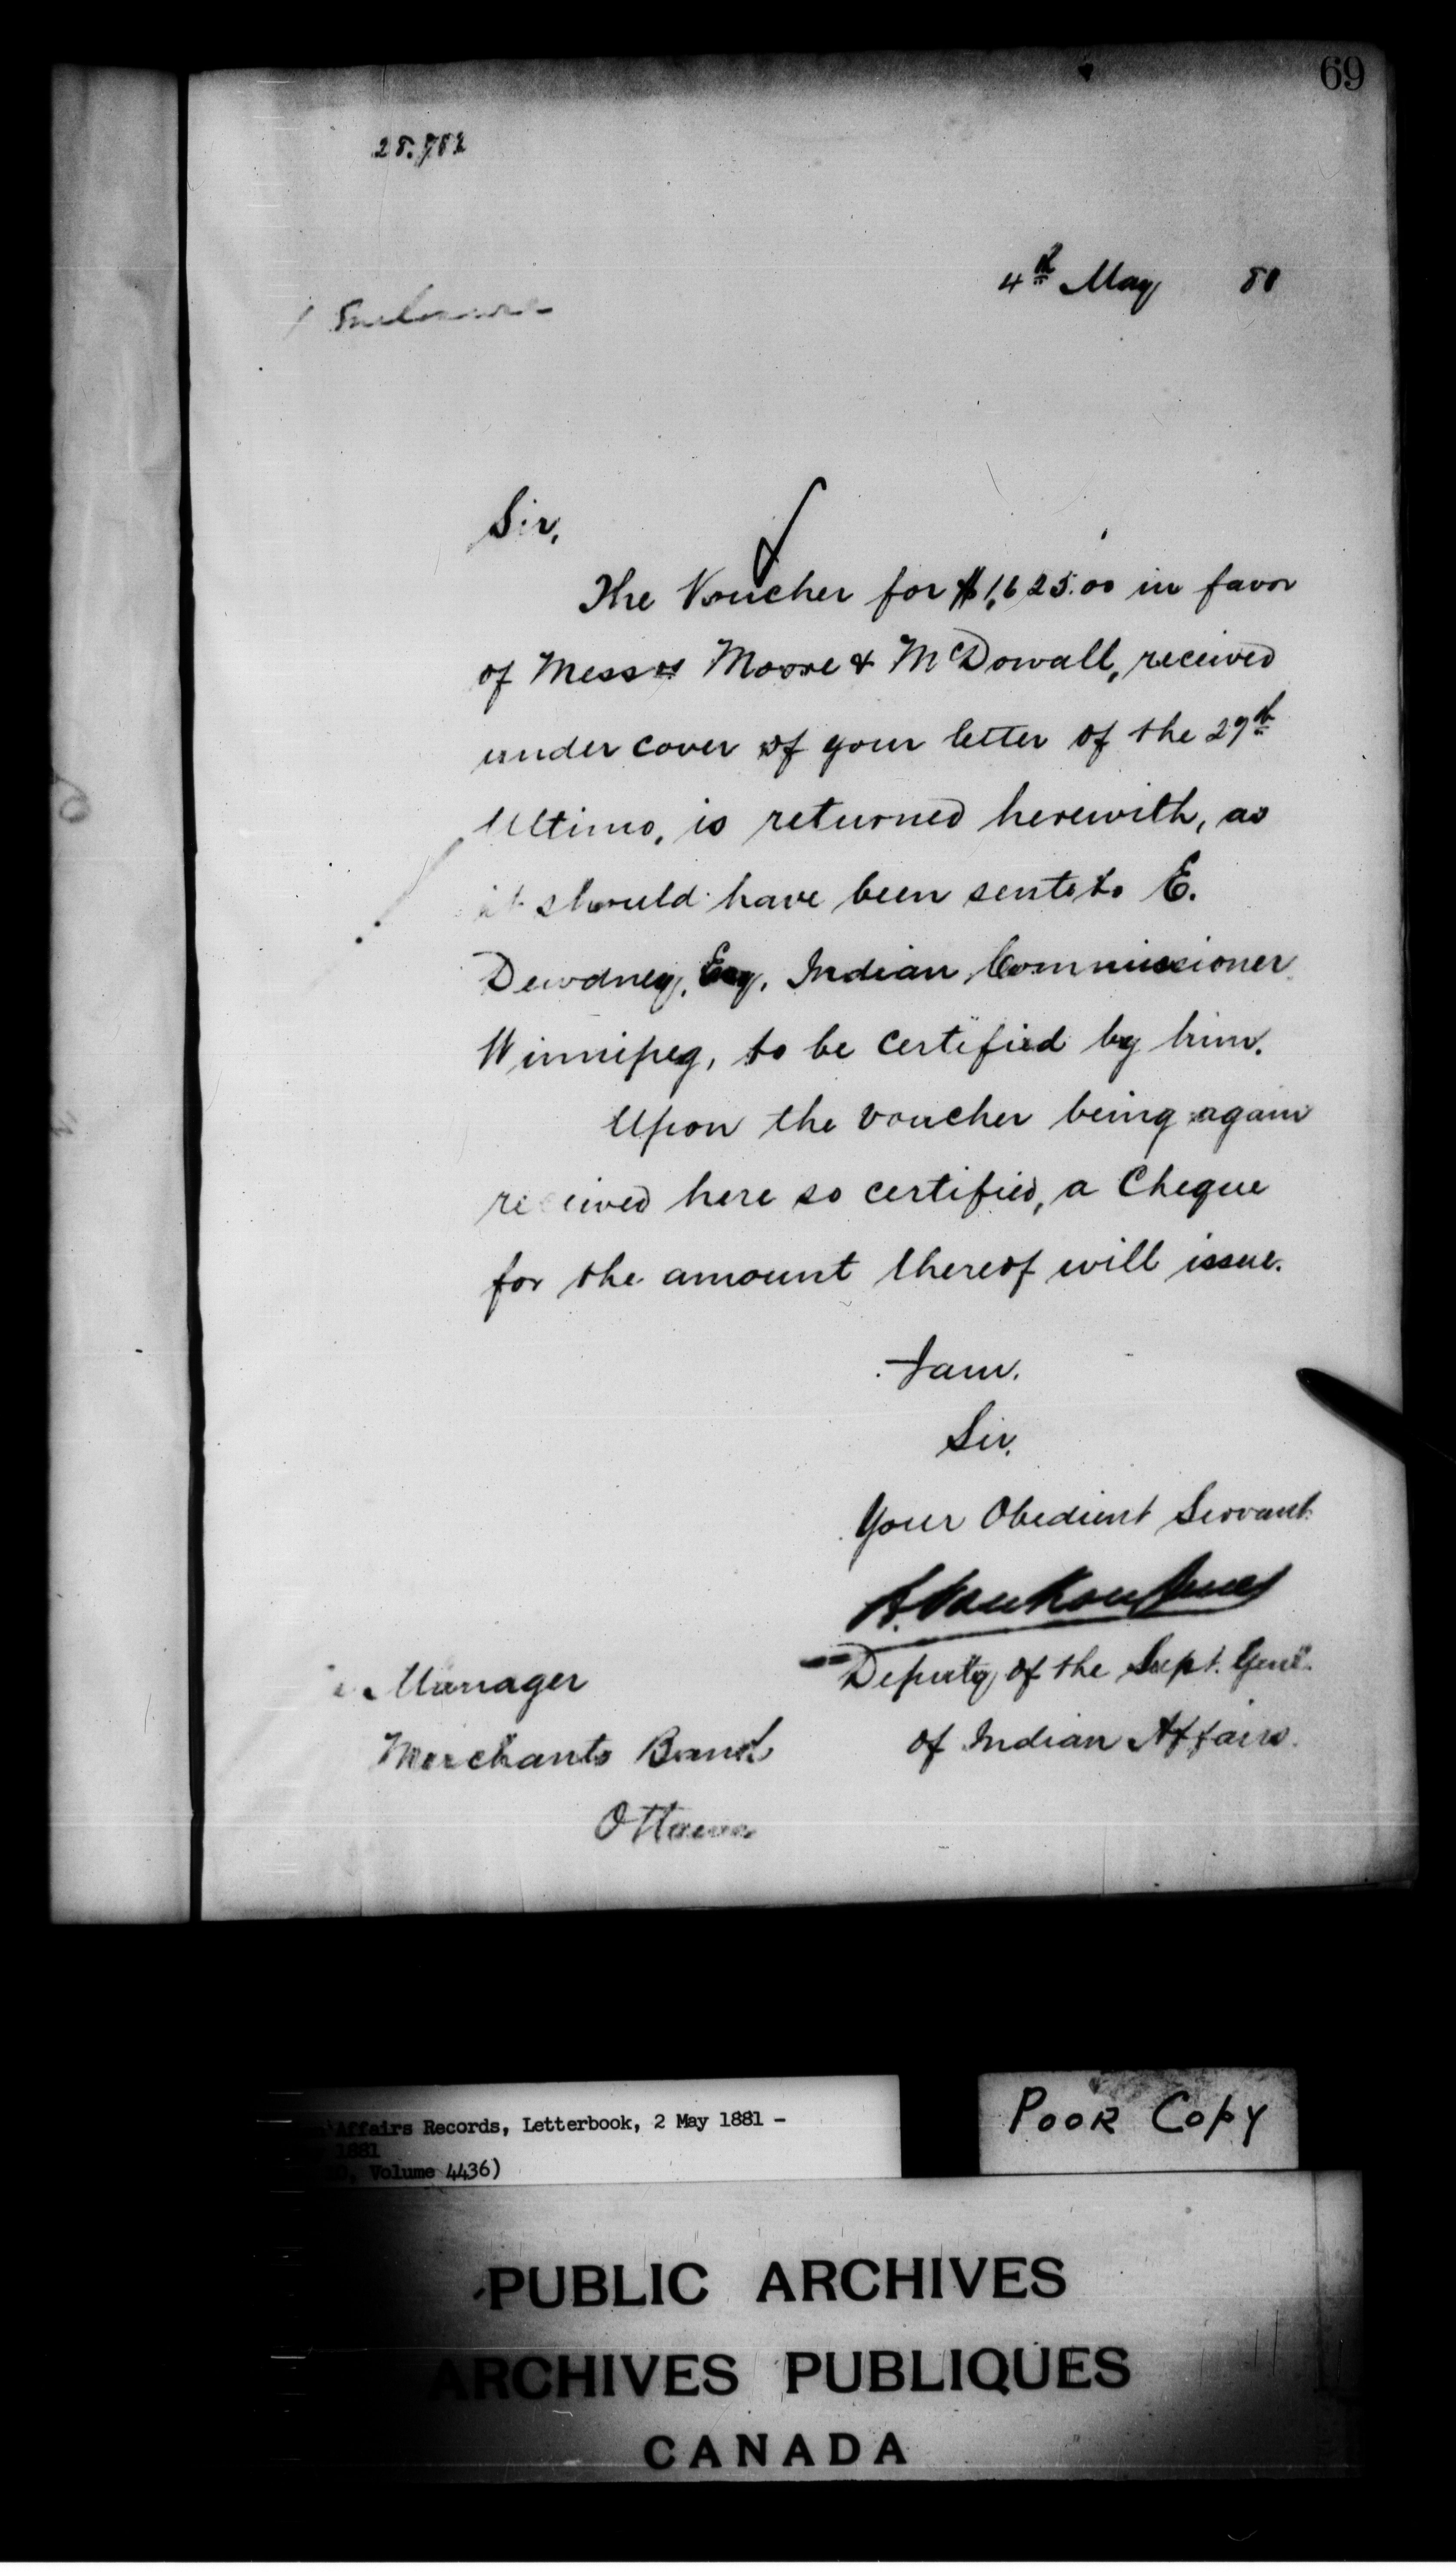 69
4th May 81
1 Enclosure
Sir,
The Voucher for $1,625.00 in favor
of Messrs Moore & McDowall, received
under cover of your letter of the 29th
Ultimo, is returned herewith, as
it should have been sent to E.
Dewdney, Esq, Indian Commissioner
Winnipeg, to be certified by him.
Upon the voucher being again
received here so certified, a Cheque
for the amount thereof will issue.
I am,
Sir,
Your Obedient Servant
L. VanKoughnet
Deputy of the Supt. Genl.
of Indian Affairs.
Manager
Merchants Bank
Ottawa
Affairs Records, Letterbook, 2 May 1881 -
1881
Volume 4436)
POOR COPY
PUBLIC ARCHIVES
ARCHIVES PUBLIQUES
CANADA